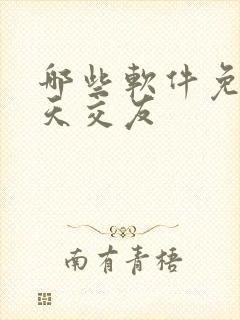 哪些軟件免
天交友
南有青梧